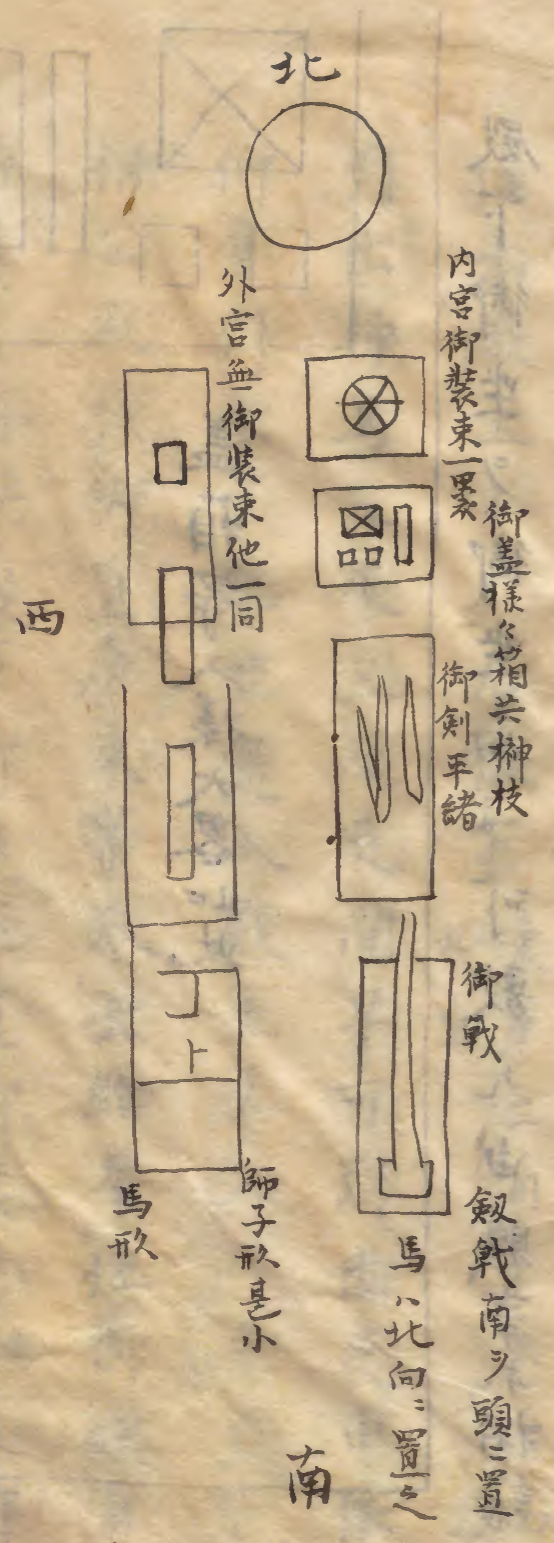 北
内宮御装束一裹
御盖様々箱共榊枝
御剣平緒
御戟
剱戟南ヲ頭ニ置
馬ハ北向ニ置之
外宮無御装束他一同
師子形是小
馬形
西
南